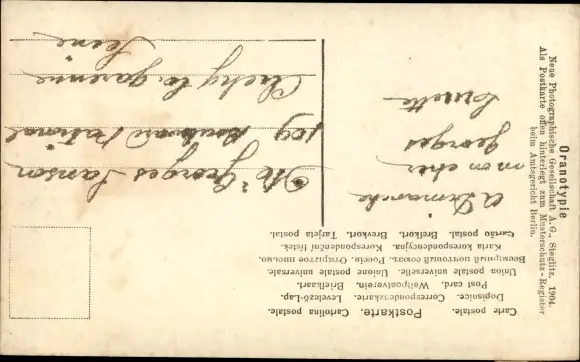 Carte postale. Postkarte. Cartolina postale.
Dopisnice. Correspondenzkarte. Levelező-Lap.
Post card. Weltpostverein. Briefkaart.
Union postale universelle. Unione postale universale.
Всемірный почтовый союзъ. Россія. Открытое письмо.
Karta korespondencyjna. Korespondenční lístek.
Cartão postal. Brefkort. Brevkort. Tarjeta postal.
a Dimanche
mon cher
georges
Lucette
Mr Georges Lanson
109 Boulevard National
Clichy la garenne
Seine
Oranotypie
Neue Photographische Gesellschaft A.G., Steglitz. 1904.
Als Postkarte offen hinterlegt zum Musterschutz-Register
beim Amtsgericht Berlin.